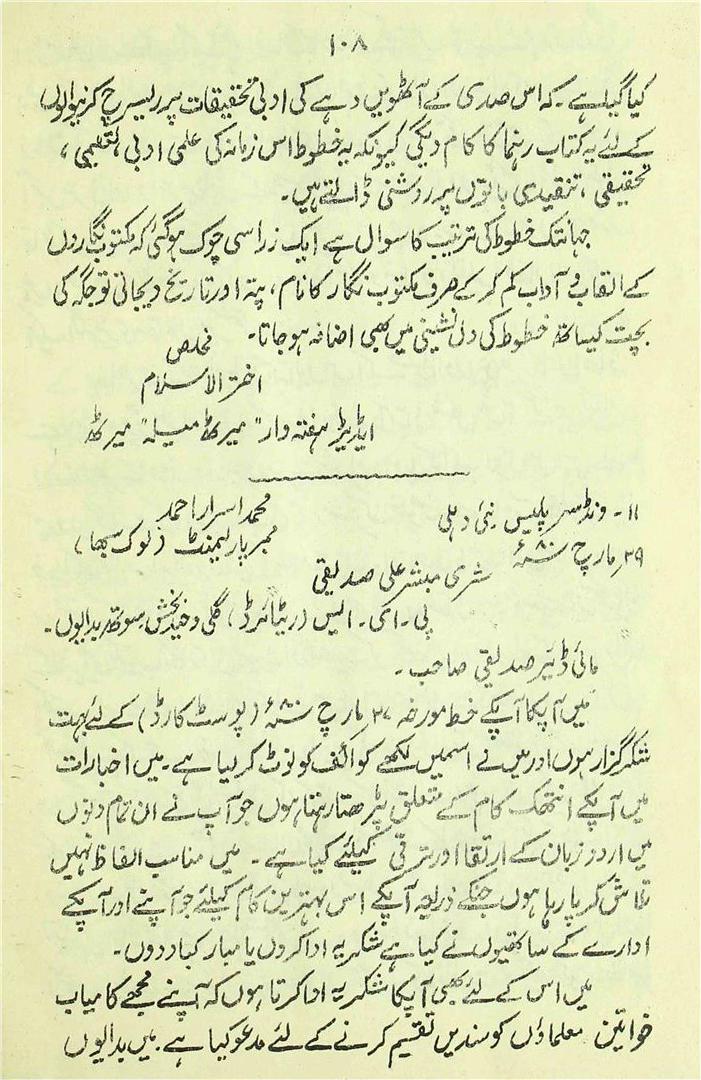 ۱۰۸
کیا گیا ہے۔ کہ اس صدی کے آٹھویں دہے کی ادبی تحقیقات پر ریسرچ کرنیوالوں
کے لئے یہ کتاب رہنما کا کام دیگی کیونکہ یہ خطوط اس زمانہ کی علمی ادبی، تعلیمی،
تحقیقی، تنقیدی باتوں پر روشنی ڈالتے ہیں۔
جہانتک خطوط کی ترتیب کا سوال ہے ایک زرا سی چوک ہوگئی کہ مکتوب نگاروں
کے القاب و آداب کم کر کے صرف مکتوب نگار کا نام، پتہ اور تاریخ دیجاتی تو جگہ کی
بچت کیساتھ خطوط کی دل نشینی میں بھی اضافہ ہو جاتا۔
مخلص
اختر الاسلام
ایڈیٹر ہفتہ وار "میرٹھ میلہ" میرٹھ
۱۱۔ ونڈسر پلیس نئی دہلی
محمد اسرار احمد
ممبر پارلیمنٹ (لوک سبھا)
۲۹؍ مارچ ۸۰ء
شری مبشر علی صدیقی
پی۔ ای۔ ایس (ریٹائرڈ)، گلی وحید بخش سوتھ بدایوں۔
مائی ڈئیر صدیقی صاحب۔
میں آپکا آپکے خط مورخہ ۲۷؍ مارچ ۸۰ء (پوسٹ کارڈ) کے لئے بہت
شکر گزار ہوں اور میں نے اسمیں لکھے کوائف کو نوٹ کر لیا ہے۔ میں اخبارات
میں آپکے انتھک کام کے متعلق پڑھتا رہتا ہوں جو آپ نے ان تمام دنوں
میں اردو زبان کے ارتقا اور ترقی کیلئے کیا ہے۔ میں مناسب الفاظ نہیں
تلاش کر پا رہا ہوں جنکے ذریعہ آپکے اس بہترین کام کیلئے جو آپنے اور آپکے
ادارے کے ساتھیوں نے کیا ہے شکریہ ادا کروں یا مبارکباد دوں۔
میں اس کے لئے بھی آپکا شکریہ ادا کرتا ہوں کہ آپنے مجھے کامیاب
خواتین معلماؤں کو سندیں تقسیم کرنے کے لئے مدعو کیا ہے۔ میں بدایوں